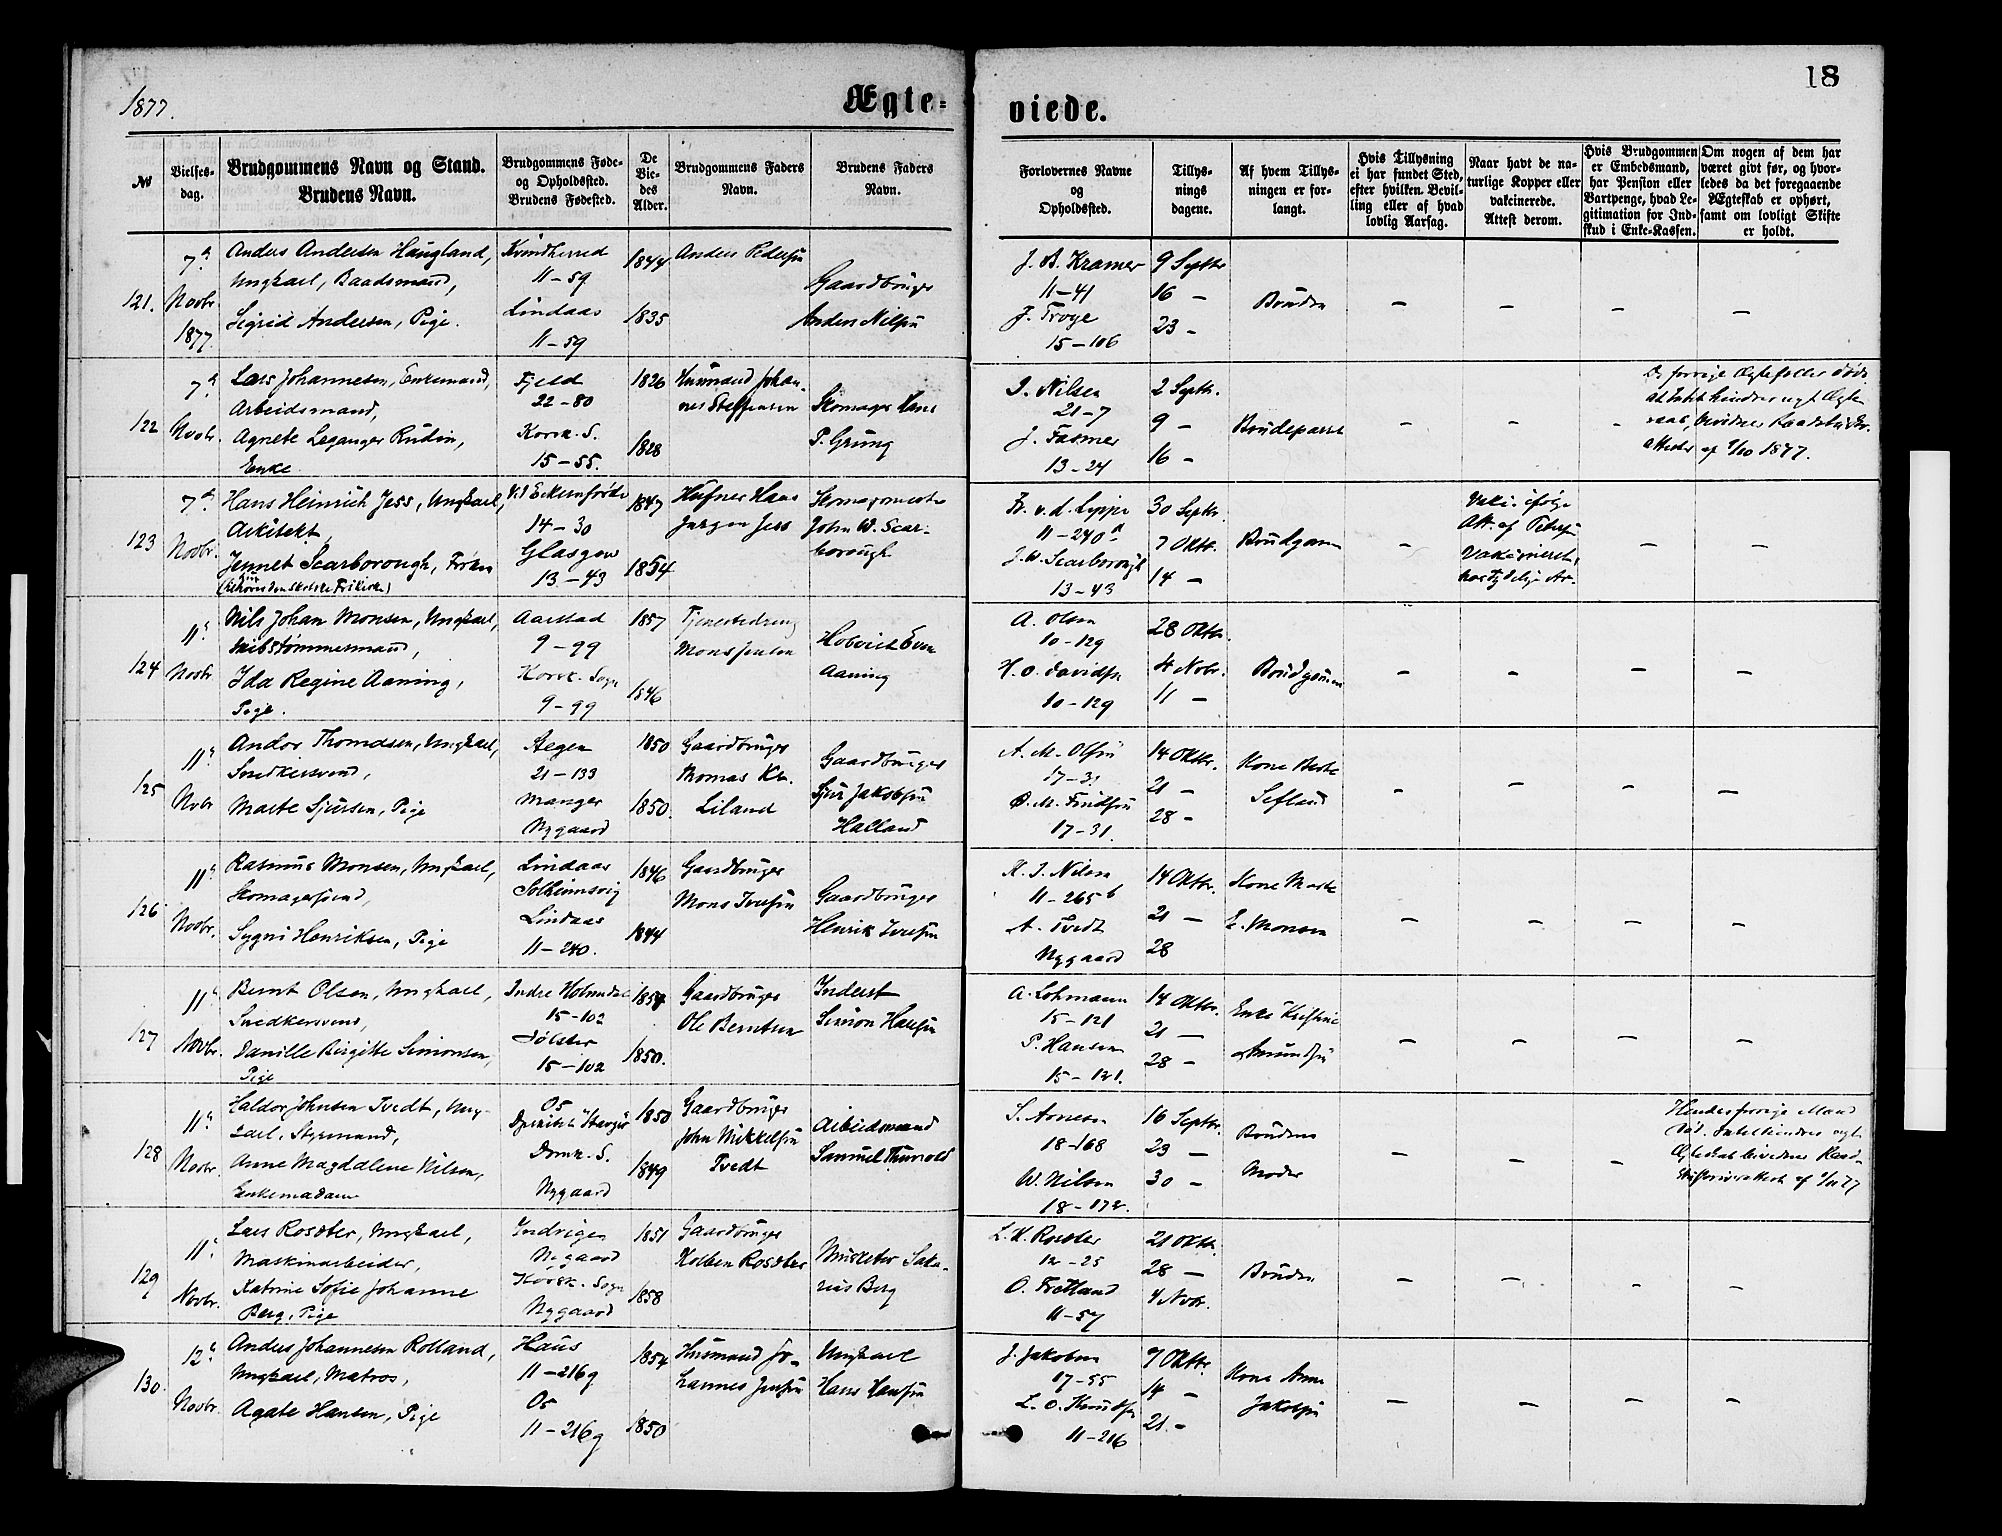 1877.
Ægte-
viede.
18
№
Vielses-
dag.
Brudgommens Navn og Stand.
Brudens Navn.
Brudgommens Føde-
og Opholdssted.
Brudens Fødested.
De
Vie-
des
Alder.
Brudgommens Faders
Navn.
Brudens Faders
Navn.
Forlovernes Navne
og
Opholdssted.
Tillys-
nings
dagene.
Af hvem Tillys-
ningen er for-
langt.
Hvis Tillysning
ei har fundet Sted,
efter hvilken Bevil-
ling eller af hvad
lovlig Aarsag.
Naar havt de na-
turlige Kopper eller
vakcinerede.
Attest derom.
Hvis Brudgommen
er Embedsmand,
har Pension eller
Vartpenge, hvad Le-
gitimation for Ind-
skud i Enke-Kassen.
Om nogen af dem har
været givt før, og hvor-
ledes da det foregaaende
Ægteskab er ophørt,
samt om lovligt Skifte
er holdt.
121.
7de
Novbr.
1877
Anders Andersen Haugland,
Ungkael, Baadsmand,
Sigrid Andersen, Pige.
Kvindherred
11-59
Lindaas
11-59
1844
1835
Anders Pedersen
Gaardbruger
Anders Nilsen
J. B. Kramer
11-41
J. Troye
15-106
9 Septbr
16 -
23 -
Bruden
- - - -
122
7de
Novbr.
Lars Johannesen, Enkemand,
Arbeidsmand,
Agnete Leganger Rudin,
Enke.
Fjeld
22-80
Korsk. S.
15-55.
1826
1828
Husmand Johan-
nes Steffensen
Skomager Hans
P. Grung
J. Nilsen
21-7
J. Fasmer
13-24
2 Septbr.
9 -
16 -
Brudeparret
- - -
De forrige Ægtefeller døde.
at Intet hindrer nyt Ægte-
1877.
123
7de
Novbr.
Hans Heinrich Jess, Ungkael,
Arkitekt,
Jennet Scarborough, Frøken
(tilhører den skotske Frikirke)
Vid Eckernførde
14-30
Glasgow
13-43
1847
1854
Hufner Hans
Jurgen Jess
Skomagermester
John W. Scar-
borough
Fr. v. d. Lippe
11-240a
J. W. Scarborough
13-43
30 Septbr.
7 Oktbr.
14 -
Brudgommen
-
Vakc. ifølge
Att. af
Vakcineret,
- -
124
11te
Novbr
Nils Johan Monsen, Ungkael,
Skibstømmermand,
Ida Regine Aaning,
Pige.
Aarstad
9-99
Korsk. Sogn
9-99
1857
1846
Tjenestedreng
Mons Jensen
Hoboist Even
Aaning
A. Olsen
10-129
H. O. Davidsen
10-129
28 Oktbr.
4 Novbr.
11 -
Brudgommen
- - - -
125
11te
Novbr
Andor Thomasen, Ungkael,
Snedkersvend,
Marte Sjursen, Pige
21-133
Manger
Nygaard
1850
1850.
Gaardbruger
Thomas Kn.
Liland
Gaardbruger
Sjur Jakobsen
Halland
A. M. Olsen
17-31
O. M. Knudsen
17-31.
14 Oktbr.
21 -
28 -
Kone Berte
- - - -
126
11te
Novbr.
Rasmus Monsen, Ungkael,
Skomagersvend,
Sygni Henriksen, Pige
Lindaas
Solheimsvig
Lindaas
11-240.
1846
1844
Gaardbruger
Mons Iversen
Gaardbruger
Henrik Iversen
K. J. Nilsen
11-265b
A. Tvedt
Nygaard
14 Oktbr.
21 -
28
Kone Marte
E. Monsen
- - - -
127
11te
Novbr.
Bernt Olsen, Ungkael,
Snedkersvend,
Danille Birgitte Simonsen,
Pige
Indre Holmedal
15-102
Jølster
15-102
1850.
Gaardbruger
Ole Berntsen
Inderst
Simon Hansen
A. Lohmann
15-121
P. Hansen
15-121.
14 Oktbr.
21 -
28 -
Enke Kristine
Amundsen
- - - -
128
11te
Novbr.
Haldor Johnsen Tvedt, Ung-
kael, Styrmand,
Anne Magdalene Nilsen,
Enkemadam
Os
Domk. S.
Nygaard
1850
1849
Gaardbruger
John Mikkelsen
Tvedt
Arbeidsmand
Samuel Thunold
S. Arnesen
18-168
W. Nilsen
18-172.
16 Septbr.
23 -
30 -
Brudens
Moder
- - -
Hendes forrige Mand
død. Intet hindrer nyt
129
11te
Novbr.
Lars Rosdter, Ungkael,
Maskinarbeider,
Katrine Sofie Johanne
Berg, Pige
Indvigen
Nygaard
Korsk. Sogn
Nygaard
1851
1858
Gaardbruger
Kolben Rosdter
Musketer Saka-
rias Berg
12-25
O. Fretland
11-57
21 Oktbr.
28 -
4 Novbr.
Bruden
- - - -
130.
12te
Novbr.
Anders Johannesen Rolland,
Ungkael, Matros,
Agate Hansen, Pige
Haus
11-216g
Os
11-216g
1854
1850
Husmand Jo-
hannes Jensen
Ungkael
Hans Hansen
J. Jakobsen
17-55
L. O. Knudsen
11-216
7 Oktbr.
14 -
21. -
Kone Anna
Jakobsen
- - - -